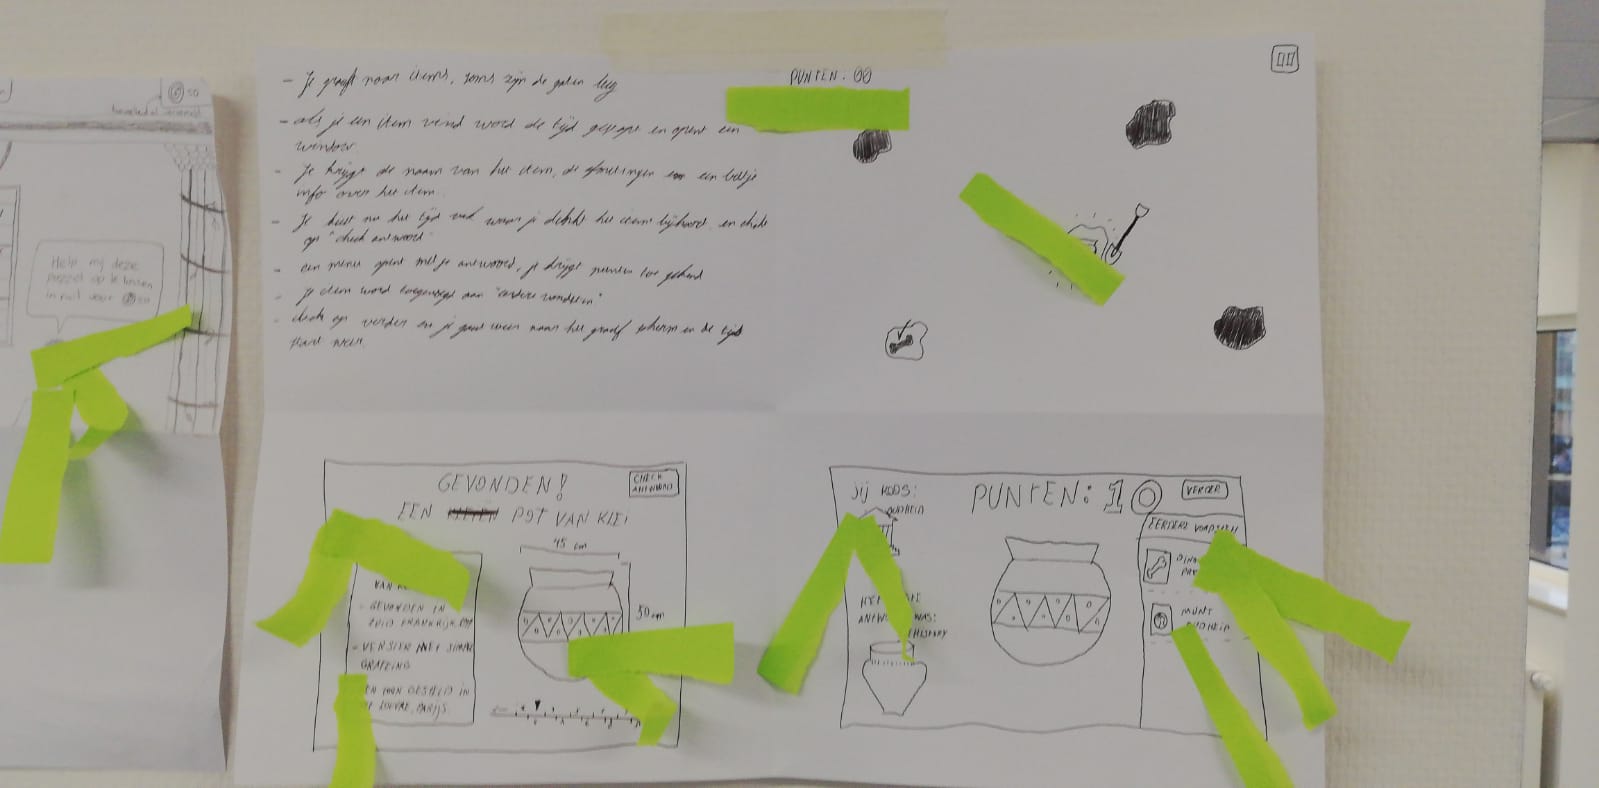 50
Help mij deze
puzzel op te lossen
in ruil voor 50
- Je graaft naar items, soms zijn de gaten leeg
- als je een item vind word de tijd gestopt en opent een
window.
- Je krijgt de naam van het item, de afmetingen en een beetje
info over het item.
- Je kiest nu het tijd vak waar je denkt het item bijhoort en clickt
op "check antwoord"
- een menu opent met je antwoord, je krijgt punten toe gekend
- je item word toegevoegd aan "eerdere vondsten"
- click op verder en je gaat weer naar het graaf scherm en de tijd
start weer.
PUNTEN: 00
GEVONDEN!
CHECK
ANTWOORD
EEN POT VAN KLEI
45 cm
50 cm
VAN
- GEVONDEN IN
ZUID FRANKRIJK
- VERSIERT MET SIMPELE
GRAFEING
TOON GESTELD IN
LOUVRE, PARIJS.
JIJ KOOS:
OUDHEID
PUNTEN: 10
VERDER
EERDERE VONDSTEN
DINO
MUNT
OUDHEID
HET
ANTW WAS: